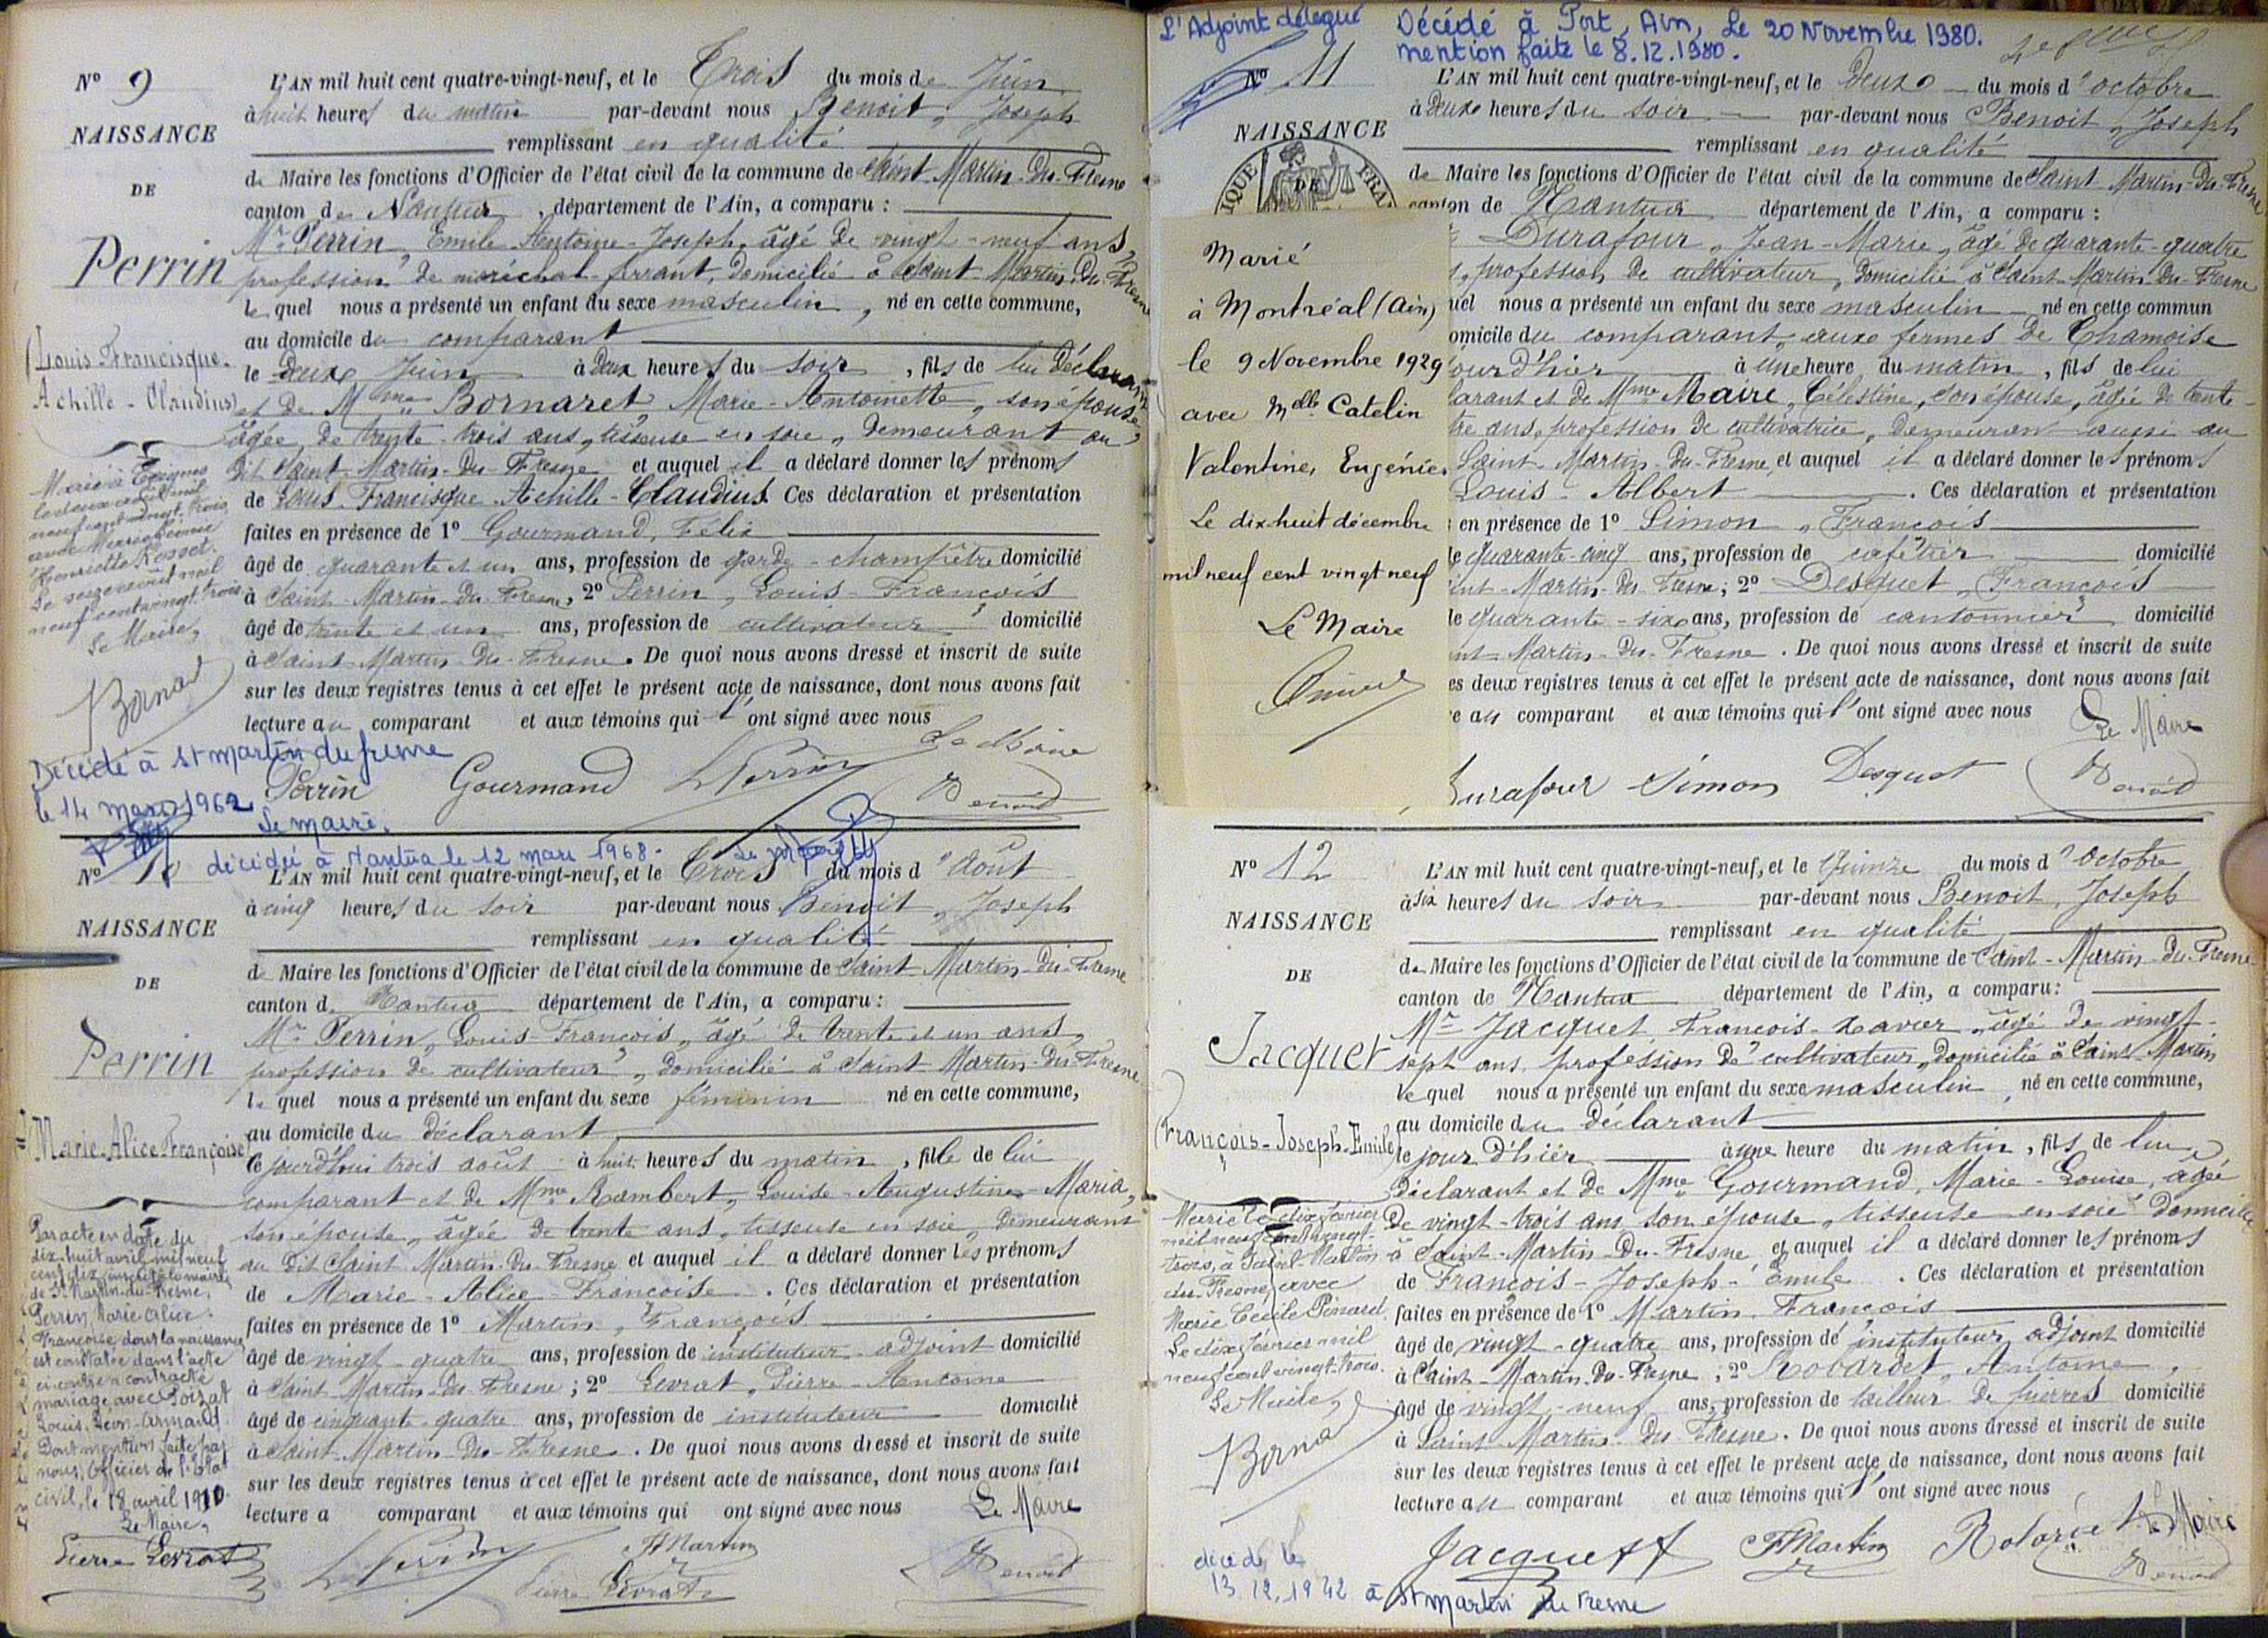 Nº 9
NAISSANCE
DE
Perrin
(Louis Francisque
Achille - Claudius)
Marié à
le deux août mil
neuf cent vingt-trois
avec Marie
Henriette Rosset.
Le seize août mil
neuf cent vingt-trois
Le Maire,
L'AN mil huit cent quatre-vingt-neuf, et le Trois du mois de Juin
à huit heures du matin par-devant nous Benoit, Joseph
remplissant en qualité
de Maire les fonctions d'Officier de l'état civil de la commune de Saint-Martin-Du-Fresne
canton de Nantua, département de l'Ain, a comparu :
Mr Perrin, Emile-Antoine-Joseph, âgé de vingt-neuf ans,
profession de maréchal-ferrant, domicilié à Saint-Martin-Du-Fresne
lequel nous a présenté un enfant du sexe masculin, né en cette commune,
au domicile du comparant
le deux Juin à deux heures du soir, fils de lui déclarant
et de Mme Bornaret, Marie-Antoinette, son épouse,
âgée de trente-trois ans, tisseuse en soie, demeurant au
dit Saint-Martin-Du-Fresne et auquel il a déclaré donner les prénoms
de Louis-Francisque-Achille-Claudius. Ces déclaration et présentation
faites en présence de 1º Gourmand, Félix
âgé de quarante et un ans, profession de garde-champêtre domicilié
à Saint-Martin-Du-Fresne, 2º Perrin, Louis-François
âgé de trente et un ans, profession de cultivateur domicilié
à Saint-Martin-Du-Fresne. De quoi nous avons dressé et inscrit de suite
sur les deux registres tenus à cet effet le présent acte de naissance, dont nous avons fait
lecture au comparant et aux témoins qui l'ont signé avec nous
Le Maire
Perrin Gourmand L Perrin Benoit
Décédé à St martin du fresne
le 14 mars 1962
Le maire.
Nº 10
décédée à Nantua le 12 mars 1968.
NAISSANCE
DE
Perrin
Marie-Alice-Françoise
Par acte en date du
dix-huit avril mil neuf
cent dix, inscrit à la mairie
de St Martin-du-Fresne,
Perrin, Marie Alice
Françoise dont la naissance
est constatée dans l'acte
ci-contre a contracté
mariage avec Poizat
Louis, Léon-Armand.
Dont mention faite par
nous, Officier de l'Etat
civil, le 18 avril 1910.
Le Maire,
L'AN mil huit cent quatre-vingt-neuf, et le Trois du mois d'Août
à cinq heures du soir par-devant nous Benoit, Joseph
remplissant en qualité
de Maire les fonctions d'Officier de l'état civil de la commune de Saint-Martin-Du-Fresne
canton de Nantua département de l'Ain, a comparu :
Mr Perrin, Louis-François, âgé de trente et un ans,
profession de cultivateur, domicilié à Saint-Martin-Du-Fresne
lequel nous a présenté un enfant du sexe féminin né en cette commune,
au domicile du déclarant
le jourd'hui trois août à huit heures du matin, fille de lui
comparant et de Mme Rambert, Louise-Augustine-Maria,
son épouse, âgée de trente ans, tisseuse en soie, demeurant
au dit Saint-Martin-Du-Fresne et auquel il a déclaré donner les prénoms
de Marie-Alice-Françoise. Ces déclaration et présentation
faites en présence de 1º Martin, François
âgé de vingt-quatre ans, profession de instituteur-adjoint domicilié
à Saint-Martin-Du-Fresne; 2º Levrat, Pierre-Antoine
âgé de cinquante-quatre ans, profession de instituteur domicilié
à Saint-Martin-Du-Fresne. De quoi nous avons dressé et inscrit de suite
sur les deux registres tenus à cet effet le présent acte de naissance, dont nous avons fait
lecture a comparant et aux témoins qui ont signé avec nous
Le Maire
Pierre Levrat L Perrin F Martin Benoit
Pierre Levrat
L'Adjoint délégué
Décédé à Port, Ain, Le 20 Novembre 1980.
mention faite le 8.12.1980.
Nº 11
NAISSANCE
DE
IQUE FRA
Marié
à Montréal (Ain)
le 9 Novembre 1929
avec Melle Catelin
Valentine, Eugénie.
Le dix-huit décembre
mil neuf cent vingt neuf
Le Maire
L'AN mil huit cent quatre-vingt-neuf, et le Deux du mois d'octobre
à Deux heures du soir par-devant nous Benoit, Joseph
remplissant en qualité
de Maire les fonctions d'Officier de l'état civil de la commune de Saint-Martin-Du-Fresne
canton de Nantua département de l'Ain, a comparu :
Durafour, Jean-Marie, âgé de quarante-quatre
s, profession de cultivateur, domicilié à Saint-Martin-Du-Fresne
uel nous a présenté un enfant du sexe masculin né en cette commun
omicile du comparant, aux fermes de Chamoise
ourd'hier à une heure du matin, fils de lui
larant et de Mme Maire, Célestine, son épouse, âgée de trente-
tre ans, profession de cultivatrice, demeurant aussi au
Saint-Martin-Du-Fresne, et auquel il a déclaré donner les prénoms
Louis-Albert. Ces déclaration et présentation
en présence de 1º Simon, François
e quarante-cinq ans, profession de cafetier domicilié
int-Martin-Du-Fresne; 2º Desquet, François
de quarante-six ans, profession de cantonnier domicilié
nt-Martin-Du-Fresne. De quoi nous avons dressé et inscrit de suite
es deux registres tenus à cet effet le présent acte de naissance, dont nous avons fait
e au comparant et aux témoins qui l'ont signé avec nous
Le Maire
Durafour Simon Desquet Benoit
Nº 12
NAISSANCE
DE
Jacquet
(François-Joseph-Emile
Marié le dix février
mil neuf cent vingt-
trois, à Saint-Martin
du-Fresne avec
Marie Cécile Pinard
Le dix février mil
neuf cent vingt-trois.
Le Maire,
L'AN mil huit cent quatre-vingt-neuf, et le Quinze du mois d'Octobre
à six heures du soir par-devant nous Benoit, Joseph
remplissant en qualité
de Maire les fonctions d'Officier de l'état civil de la commune de Saint-Martin-Du-Fresne
canton de Nantua département de l'Ain, a comparu :
Mr Jacquet, François-Xavier, âgé de vingt-
sept ans, profession de cultivateur, domicilié à Saint-Martin
lequel nous a présenté un enfant du sexe masculin, né en cette commune,
au domicile du déclarant
le jour d'hier à une heure du matin, fils de lui
déclarant et de Mme Gourmand, Marie-Louise, âgée
de vingt-trois ans, son épouse, tisseuse en soie domiciliée
à Saint-Martin-Du-Fresne et auquel il a déclaré donner les prénoms
de François-Joseph-Emile. Ces déclaration et présentation
faites en présence de 1º Martin, François
âgé de vingt-quatre ans, profession de instituteur adjoint domicilié
à Saint-Martin-Du-Fresne; 2º Robardet, Antoine
âgé de vingt-neuf ans, profession de tailleur de pierres domicilié
à Saint-Martin-Du-Fresne. De quoi nous avons dressé et inscrit de suite
sur les deux registres tenus à cet effet le présent acte de naissance, dont nous avons fait
lecture au comparant et aux témoins qui l'ont signé avec nous
Le Maire
Jacquet F Martin Benoit
décédé le
13.12.1942 à St martin du Fresne